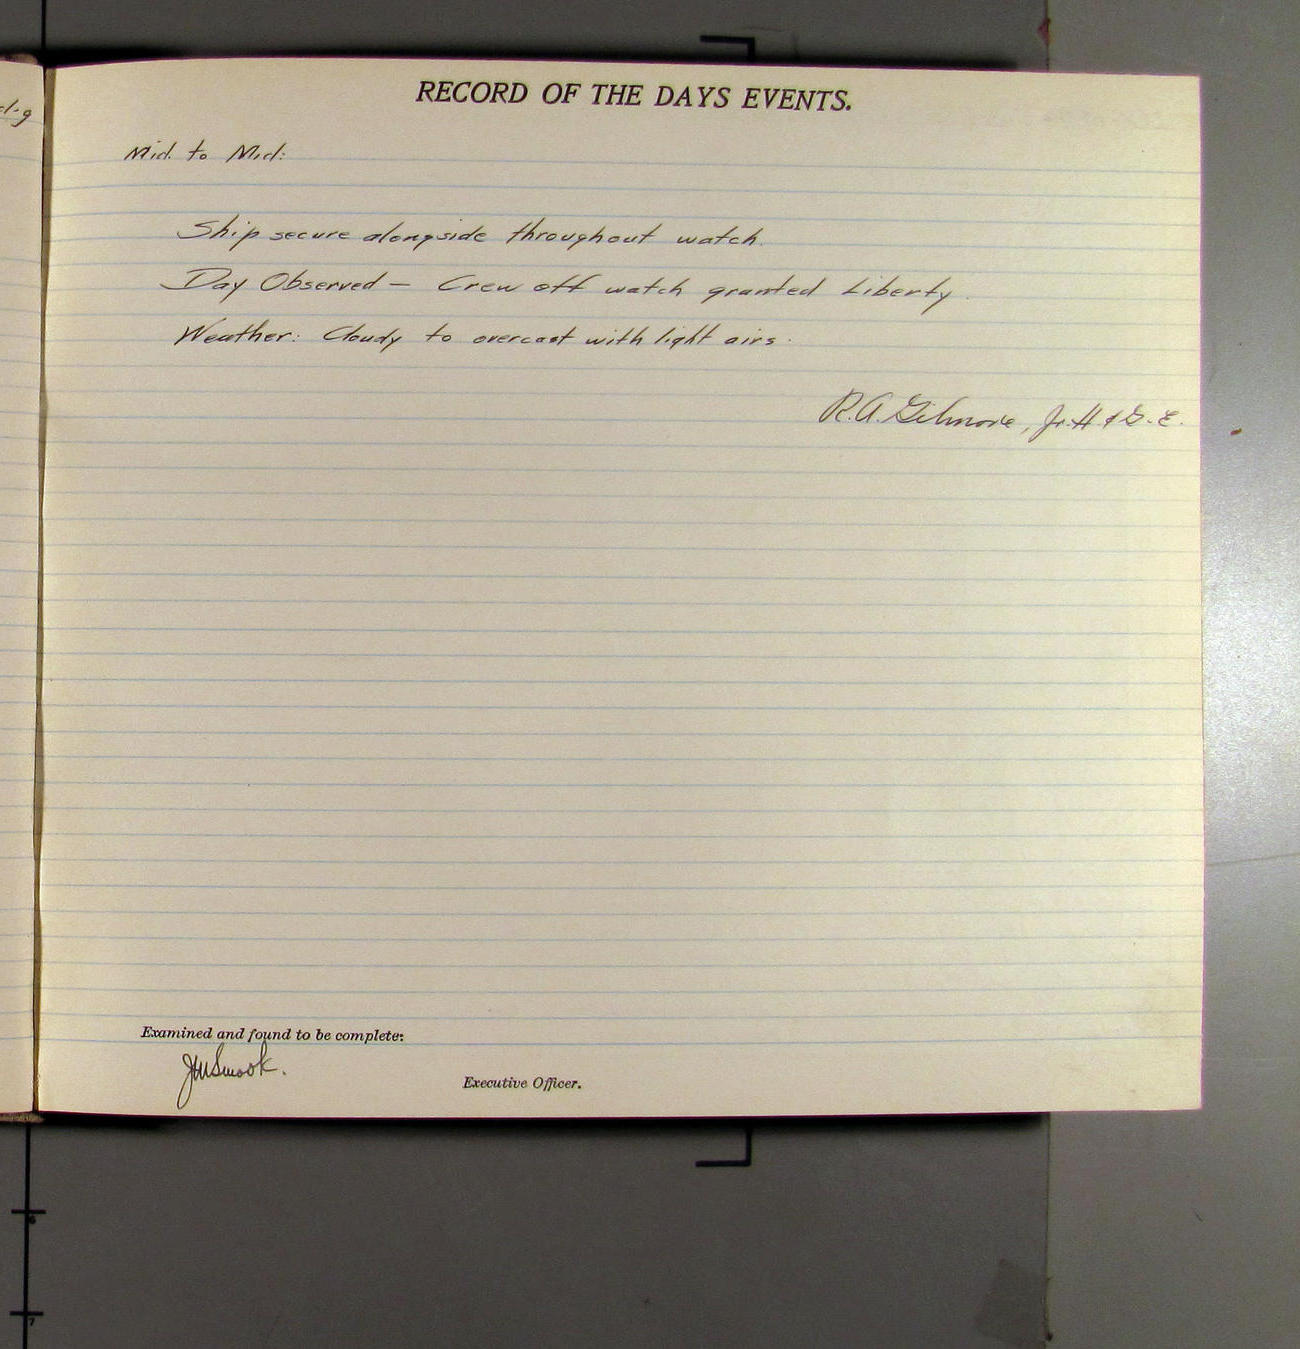 RECORD OF THE DAYS EVENTS.
Mid. to Mid:
Ship secure alongside throughout watch.
Day Observed — Crew off watch granted Liberty.
Weather: Cloudy to overcast with light airs.
R.A. Gilmore, Jr. H & G. E.
Examined and found to be complete:
JMSmook.
Executive Officer.
6
7